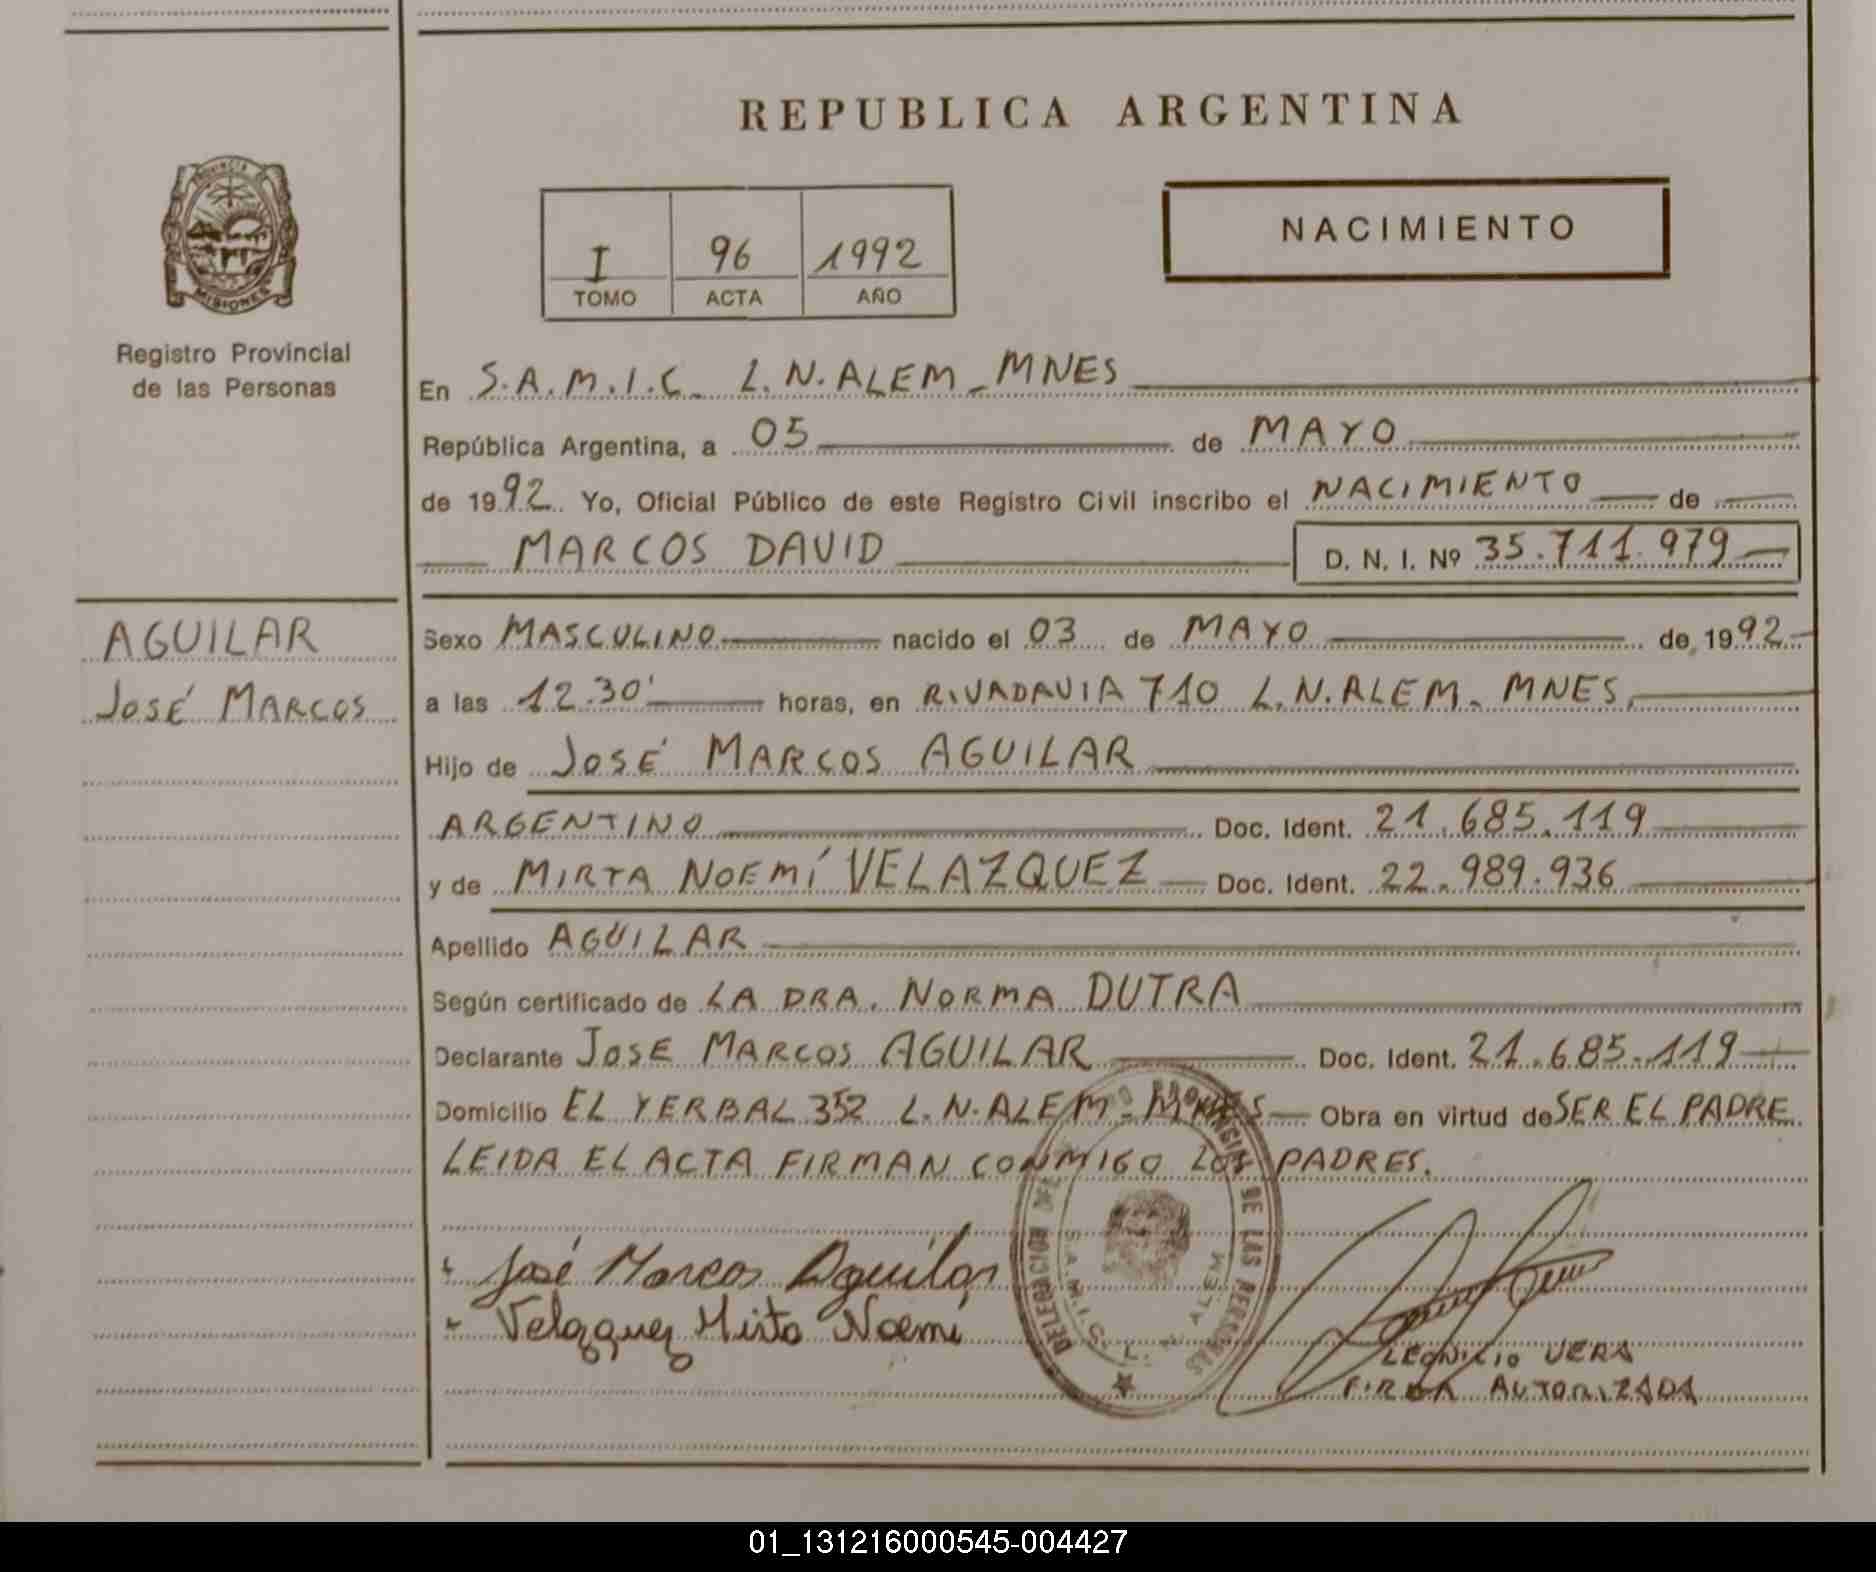 REPUBLICA ARGENTINA
PROVINCIA DE
MISIONES
Registro Provincial
de las Personas
I 96 1992
TOMO ACTA AÑO
NACIMIENTO
En S.A.M.I.C. L.N.ALEM_MNES
República Argentina, a 05 de MAYO
de 1992. Yo, Oficial Público de este Registro Civil inscribo el NACIMIENTO de
MARCOS DAVID D. N. I. Nº 35.711.979
AGUILAR
JOSÉ MARCOS
Sexo MASCULINO nacido el 03 de MAYO de 1992
a las 12.30' horas, en RIVADAVIA 710 L.N.ALEM. MNES.
Hijo de JOSÉ MARCOS AGUILAR
ARGENTINO Doc. Ident. 21.685.119
y de MIRTA NOEMÍ VELAZQUEZ Doc. Ident. 22.989.936
Apellido AGUILAR
Según certificado de LA DRA. NORMA DUTRA
Declarante JOSE MARCOS AGUILAR Doc. Ident. 21.685.119
Domicilio EL YERBAL 352 L.N.ALEM-MNES Obra en virtud de SER EL PADRE.
LEIDA EL ACTA FIRMAN CONMIGO LOS PADRES.
José Marcos Aguilar
Velazquez Mirta Noemi
DELEGACION DEL PROVINCIAL DE LAS PERSONAS
S.A.M.I.C. L. N. ALEM
LEONICIO VERA
FIRMA AUTORIZADA
01_131216000545-004427